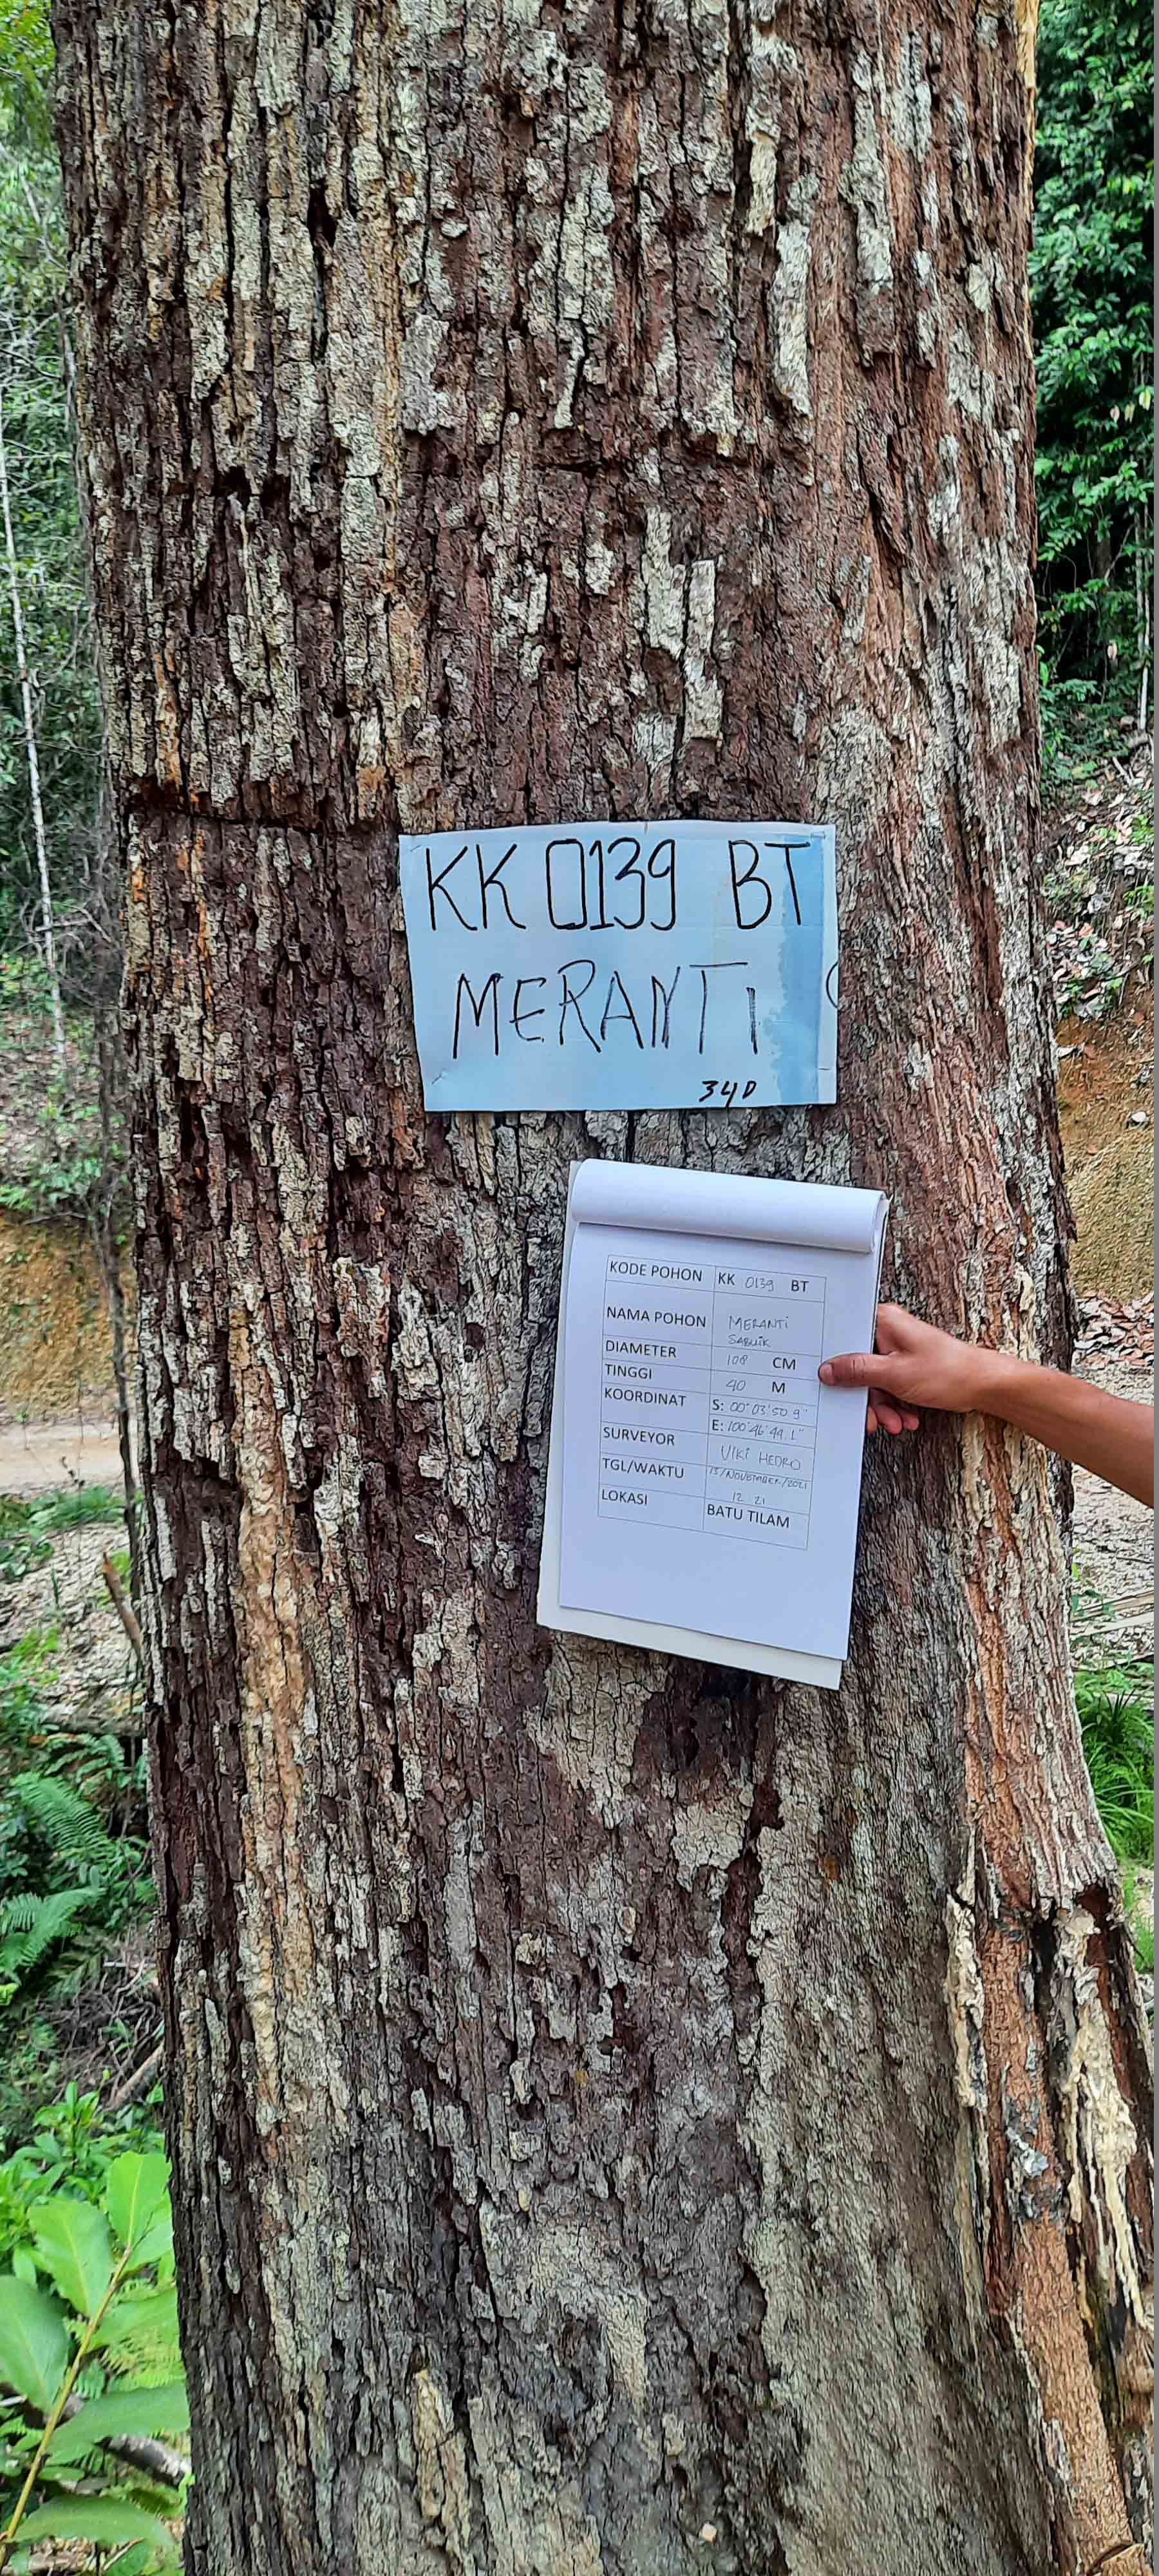 KK 0139 BT
MERANTI
340
KODE POHON KK 0139 BT
NAMA POHON MERANTI
DIAMETER 108 CM
TINGGI 40 M
KOORDINAT S: 00° 03' 50.9"
E: 100° 46' 44.1"
SURVEYOR VIKI HEDRO
TGL/WAKTU 15/NOVEMBER/2021
12 21
LOKASI BATU TILAM